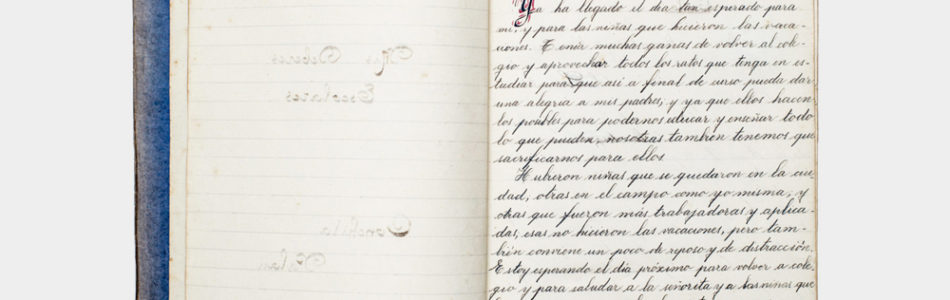 Mis Deberes
Escolares
Conchita
Ya ha llegado el dia tan esperado para
mi, y para las niñas que hicieron las vaca-
ciones. Tenia muchas ganas de volver al cole-
gio y aprovechar todos los ratos que tenga en es-
tudiar para que asi a final de curso pueda dar
una alegria a mis padres, y ya que ellos hacen
los posibles para podernos educar y enseñar todo
lo que pueden, nosotras tambien tenemos que
sacrificarnos para ellos
Hubieron niñas que se quedaron en la ciu-
dad, otras en el campo como yo misma, y
otras que fueron más trabajadoras y aplica-
das, esas no hicieron las vacaciones, pero tam-
bién conviene un poco de reposo y de distracción.
Estoy esperando el dia próximo para volver a cole-
gio y para saludar a la señorita y a las niñas que